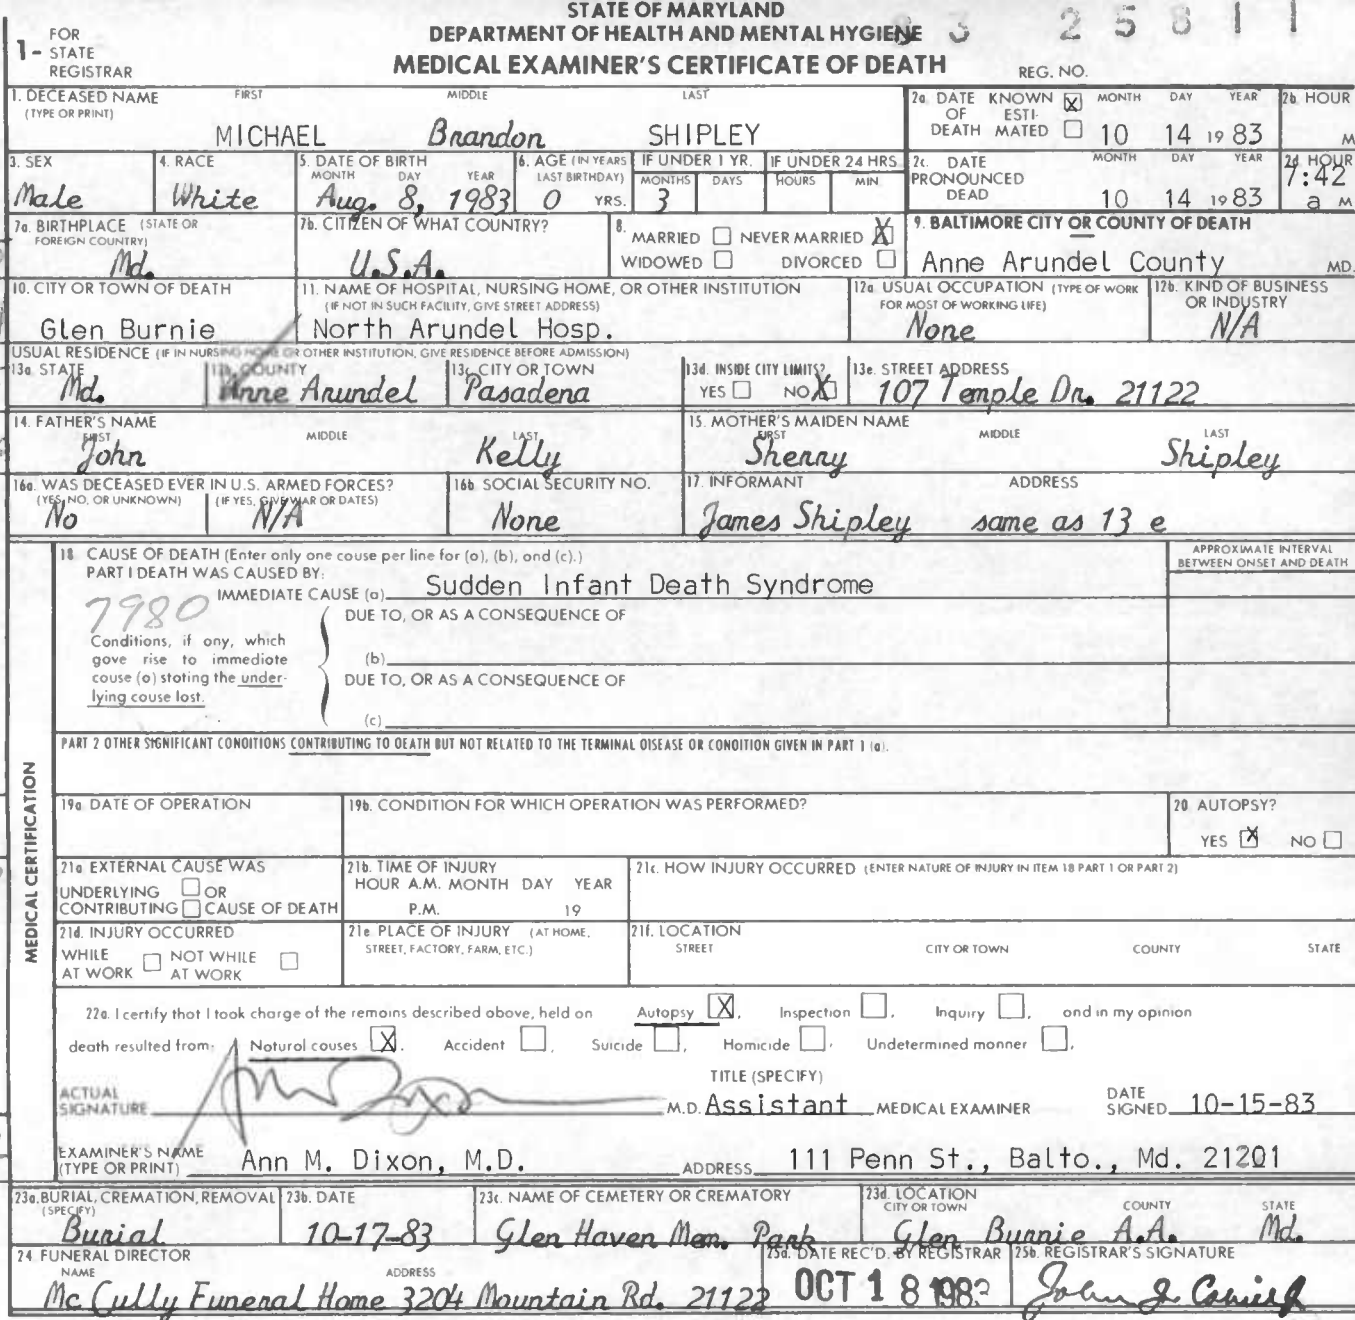 STATE OF MARYLAND
DEPARTMENT OF HEALTH AND MENTAL HYGIENE
MEDICAL EXAMINER'S CERTIFICATE OF DEATH
1- FOR STATE REGISTRAR
REG. NO.
1. DECEASED NAME (TYPE OR PRINT) FIRST MIDDLE LAST
MICHAEL Brandon SHIPLEY
2a. DATE OF DEATH KNOWN X ESTIMATED MONTH DAY YEAR
10 14 19 83
2b. HOUR M
3. SEX
Male
4. RACE
White
5. DATE OF BIRTH MONTH DAY YEAR
Aug. 8, 1983
6. AGE (IN YEARS LAST BIRTHDAY)
0 YRS.
IF UNDER 1 YR. MONTHS DAYS
3
IF UNDER 24 HRS. HOURS MIN.
2c. DATE PRONOUNCED DEAD MONTH DAY YEAR
10 14 19 83
2d. HOUR
7:42 a M
7a. BIRTHPLACE (STATE OR FOREIGN COUNTRY)
Md.
7b. CITIZEN OF WHAT COUNTRY?
U.S.A.
8. MARRIED NEVER MARRIED X
WIDOWED DIVORCED
9. BALTIMORE CITY OR COUNTY OF DEATH
Anne Arundel County MD.
10. CITY OR TOWN OF DEATH
Glen Burnie
11. NAME OF HOSPITAL, NURSING HOME, OR OTHER INSTITUTION
(IF NOT IN SUCH FACILITY, GIVE STREET ADDRESS)
North Arundel Hosp.
12a. USUAL OCCUPATION (TYPE OF WORK FOR MOST OF WORKING LIFE)
None
12b. KIND OF BUSINESS OR INDUSTRY
N/A
USUAL RESIDENCE (IF IN NURSING HOME OR OTHER INSTITUTION, GIVE RESIDENCE BEFORE ADMISSION)
13a. STATE
Md.
13b. COUNTY
Anne Arundel
13c. CITY OR TOWN
Pasadena
13d. INSIDE CITY LIMITS?
YES NO X
13e. STREET ADDRESS
107 Temple Dr. 21122
14. FATHER'S NAME FIRST MIDDLE LAST
John Kelly
15. MOTHER'S MAIDEN NAME FIRST MIDDLE LAST
Sherry Shipley
16a. WAS DECEASED EVER IN U.S. ARMED FORCES?
(YES, NO, OR UNKNOWN) (IF YES, GIVE WAR OR DATES)
No N/A
16b. SOCIAL SECURITY NO.
None
17. INFORMANT ADDRESS
James Shipley same as 13 e
MEDICAL CERTIFICATION
18. CAUSE OF DEATH (Enter only one cause per line for (a), (b), and (c).)
APPROXIMATE INTERVAL BETWEEN ONSET AND DEATH
PART I DEATH WAS CAUSED BY:
IMMEDIATE CAUSE (a) Sudden Infant Death Syndrome
7980
DUE TO, OR AS A CONSEQUENCE OF
Conditions, if any, which gave rise to immediate cause (a) stating the underlying cause last.
(b)
DUE TO, OR AS A CONSEQUENCE OF
(c)
PART 2 OTHER SIGNIFICANT CONDITIONS CONTRIBUTING TO DEATH BUT NOT RELATED TO THE TERMINAL DISEASE OR CONDITION GIVEN IN PART 1 (a).
19a. DATE OF OPERATION
19b. CONDITION FOR WHICH OPERATION WAS PERFORMED?
20. AUTOPSY?
YES X NO
21a. EXTERNAL CAUSE WAS
UNDERLYING OR
CONTRIBUTING CAUSE OF DEATH
21b. TIME OF INJURY
HOUR A.M. MONTH DAY YEAR
P.M. 19
21c. HOW INJURY OCCURRED (ENTER NATURE OF INJURY IN ITEM 18 PART 1 OR PART 2)
21d. INJURY OCCURRED
WHILE AT WORK NOT WHILE AT WORK
21e. PLACE OF INJURY (AT HOME, STREET, FACTORY, FARM, ETC.)
21f. LOCATION
STREET CITY OR TOWN COUNTY STATE
22a. I certify that I took charge of the remains described above, held on Autopsy X, Inspection, Inquiry, and in my opinion
death resulted from: Natural causes X. Accident, Suicide, Homicide, Undetermined manner.
TITLE (SPECIFY)
ACTUAL SIGNATURE M.D. Assistant MEDICAL EXAMINER DATE SIGNED 10-15-83
EXAMINER'S NAME (TYPE OR PRINT) Ann M. Dixon, M.D. ADDRESS 111 Penn St., Balto., Md. 21201
23a. BURIAL, CREMATION, REMOVAL (SPECIFY)
Burial
23b. DATE
10-17-83
23c. NAME OF CEMETERY OR CREMATORY
Glen Haven Mem. Park
23d. LOCATION CITY OR TOWN COUNTY STATE
Glen Burnie A.A. Md.
24. FUNERAL DIRECTOR
NAME ADDRESS
Mc Cully Funeral Home 3204 Mountain Rd. 21122
25a. DATE REC'D. BY REGISTRAR
OCT 18 1983
25b. REGISTRAR'S SIGNATURE